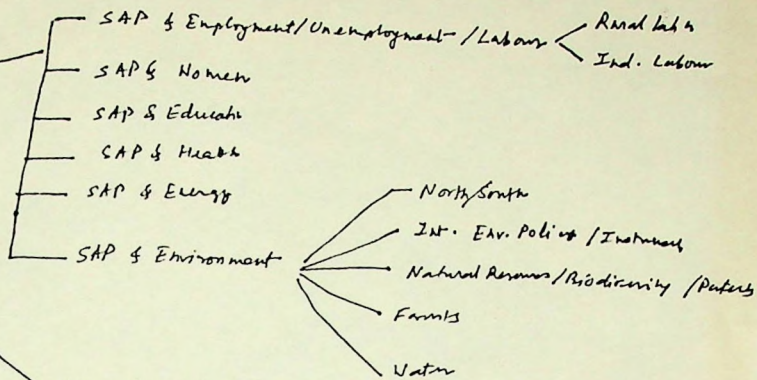 SAP & Employment/Unemployment/Labour
Rural Lab
Ind. Labour
SAP & Women
SAP & Educatn
SAP & Health
SAP & Energy
SAP & Environment
North/South
Int. Env. Policies / Instruments
Natural Resources/Biodiversity/Patents
Forests
Water